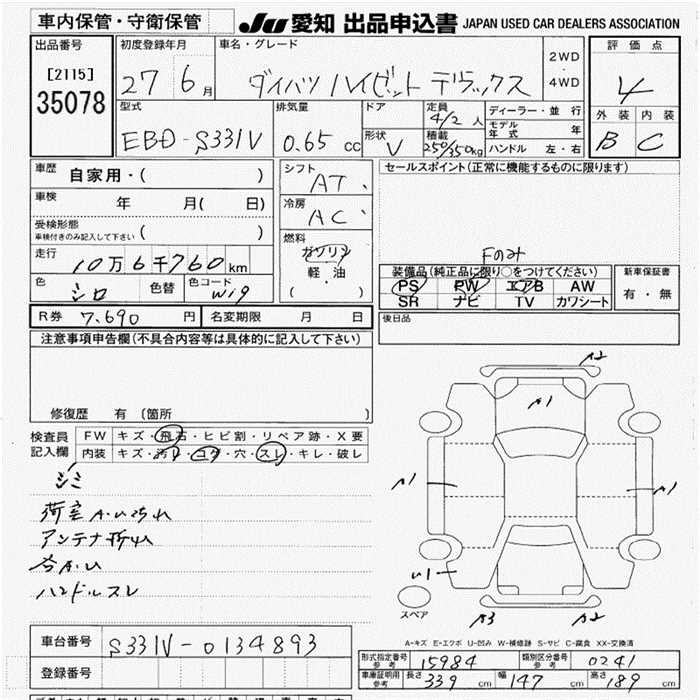 車内保管・守衛保管
JU 愛知 出品申込書 JAPAN USED CAR DEALERS ASSOCIATION
出品番号
[2115]
35078
初度登録年月
27 6 月
車名・グレード
ダイハツ ハイゼット デラックス
2WD
・
4WD
評価点
4
外装 内装
B C
型式
EBD-S331V
排気量
0.65 cc
ドア
形状
V
定員
4/2 人
積載
250/350kg
ディーラー・並行
モデル
年式 年
ハンドル 左・右
車歴
自家用・( )
車検 年 月( 日)
受検形態
車検付きのみ記入して下さい ( )
走行
10万6千760km
色
シロ
色替
色コード
W19
シフト
AT
冷房
AC
燃料
ガソリン
軽・油
( )
セールスポイント(正常に機能するものに限ります)
Fのみ
装備品(純正品に限り○をつけてください)
PS PW エアB AW
SR ナビ TV カワシート
新車保証書
有・無
R券 7,690 円 名変期限 月 日
後日品
注意事項申告欄(不具合内容等は具体的に記入して下さい)
修復歴 有 (箇所 )
検査員
記入欄
FW キズ・飛石・ヒビ割・リペア跡・X要
内装 キズ・汚レ・コゲ・穴・スレ・キレ・破レ
シミ
荷室A.Uスレ
アンテナ折れ
ハンドルスレ
A2
A1
A1
A1
U1
A3
A2
スペア
A-キズ E-エクボ U-凹み W-補修跡 S-サビ C-腐食 XX-交換済
車台番号 S331V-0134893
登録番号
形式指定番号
参考
15984
類別区分番号
参考
0241
車庫証明用
参考
長さ 339 cm 幅 147 cm 高さ 189 cm